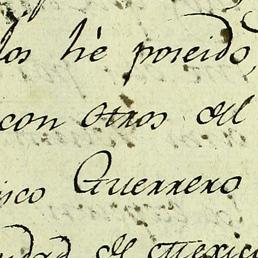 los hé poseido,
con otros del
rico Guerrero
udad de Mexico